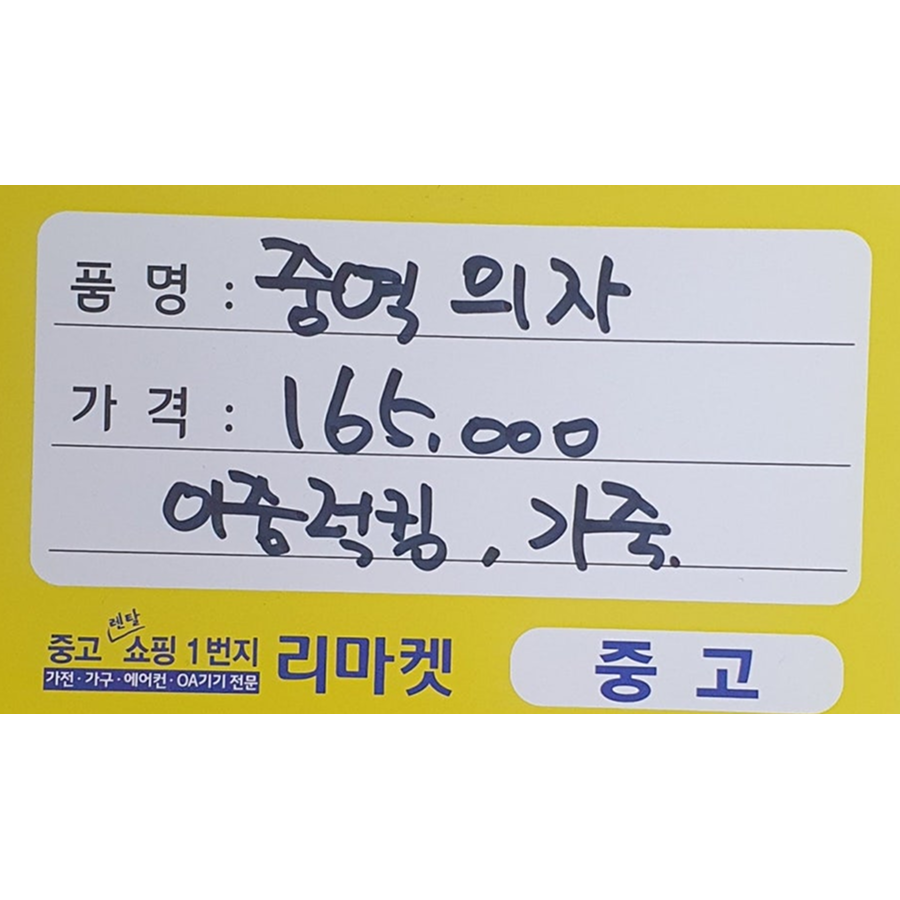 품 명 : 중역 의자
가 격 : 165.000
이중럭킹, 가죽.
렌탈
중고 쇼핑 1번지 리마켓 중 고
가전·가구·에어컨·OA기기 전문